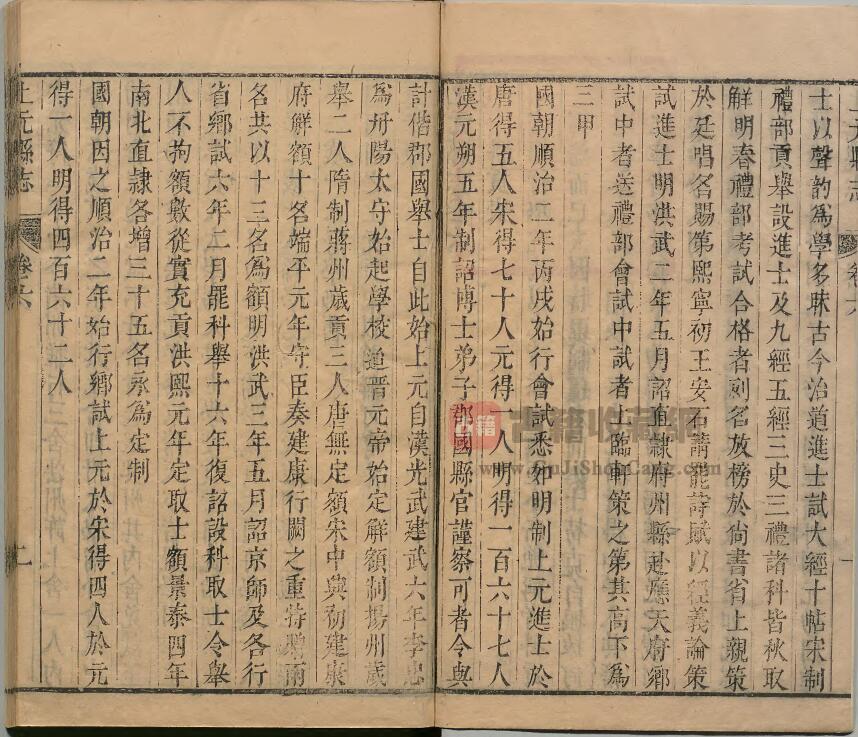 上元縣志
卷六
一
士以聲韵為學多昧古今治道進士試大經十帖宋制
禮部貢舉設進士及九經五經三史三禮諸科皆秋取
解明春禮部考試合格者列名放榜於尚書省上親策
於廷唱名賜第熙寧初王安石請罷詩賦以經義論策
試進士明洪武二年五月詔直隸府州縣赴應天府鄉
試中者送禮部會試中試者上臨軒策之第其高下為
三甲
國朝順治二年丙戌始行會試悉如明制上元進士於
唐得五人宋得七十人元得一人明得一百六十七人
漢元朔五年制詔博士弟子郡國縣官謹察可者令與
計偕郡國舉士自此始上元自漢光武建武六年李忠
為丹陽太守始起學校迨晉元帝始定解額制揚州歲
舉二人隋制蔣州歲貢三人唐無定額宋中興初建康
府解額十名端平元年守臣奏建康行闕之重特贈兩
名共以十三名為額明洪武三年五月詔京師及各行
省鄉試六年二月罷科舉十六年復詔設科取士令舉
人不拘額數從實充貢洪熙元年定取士額景泰四年
南北直隸各增三十五名永為定制
國朝因之順治二年始行鄉試上元於宋得四人於元
得一人明得四百六十二人
上元縣志
卷六
二
古籍收藏網